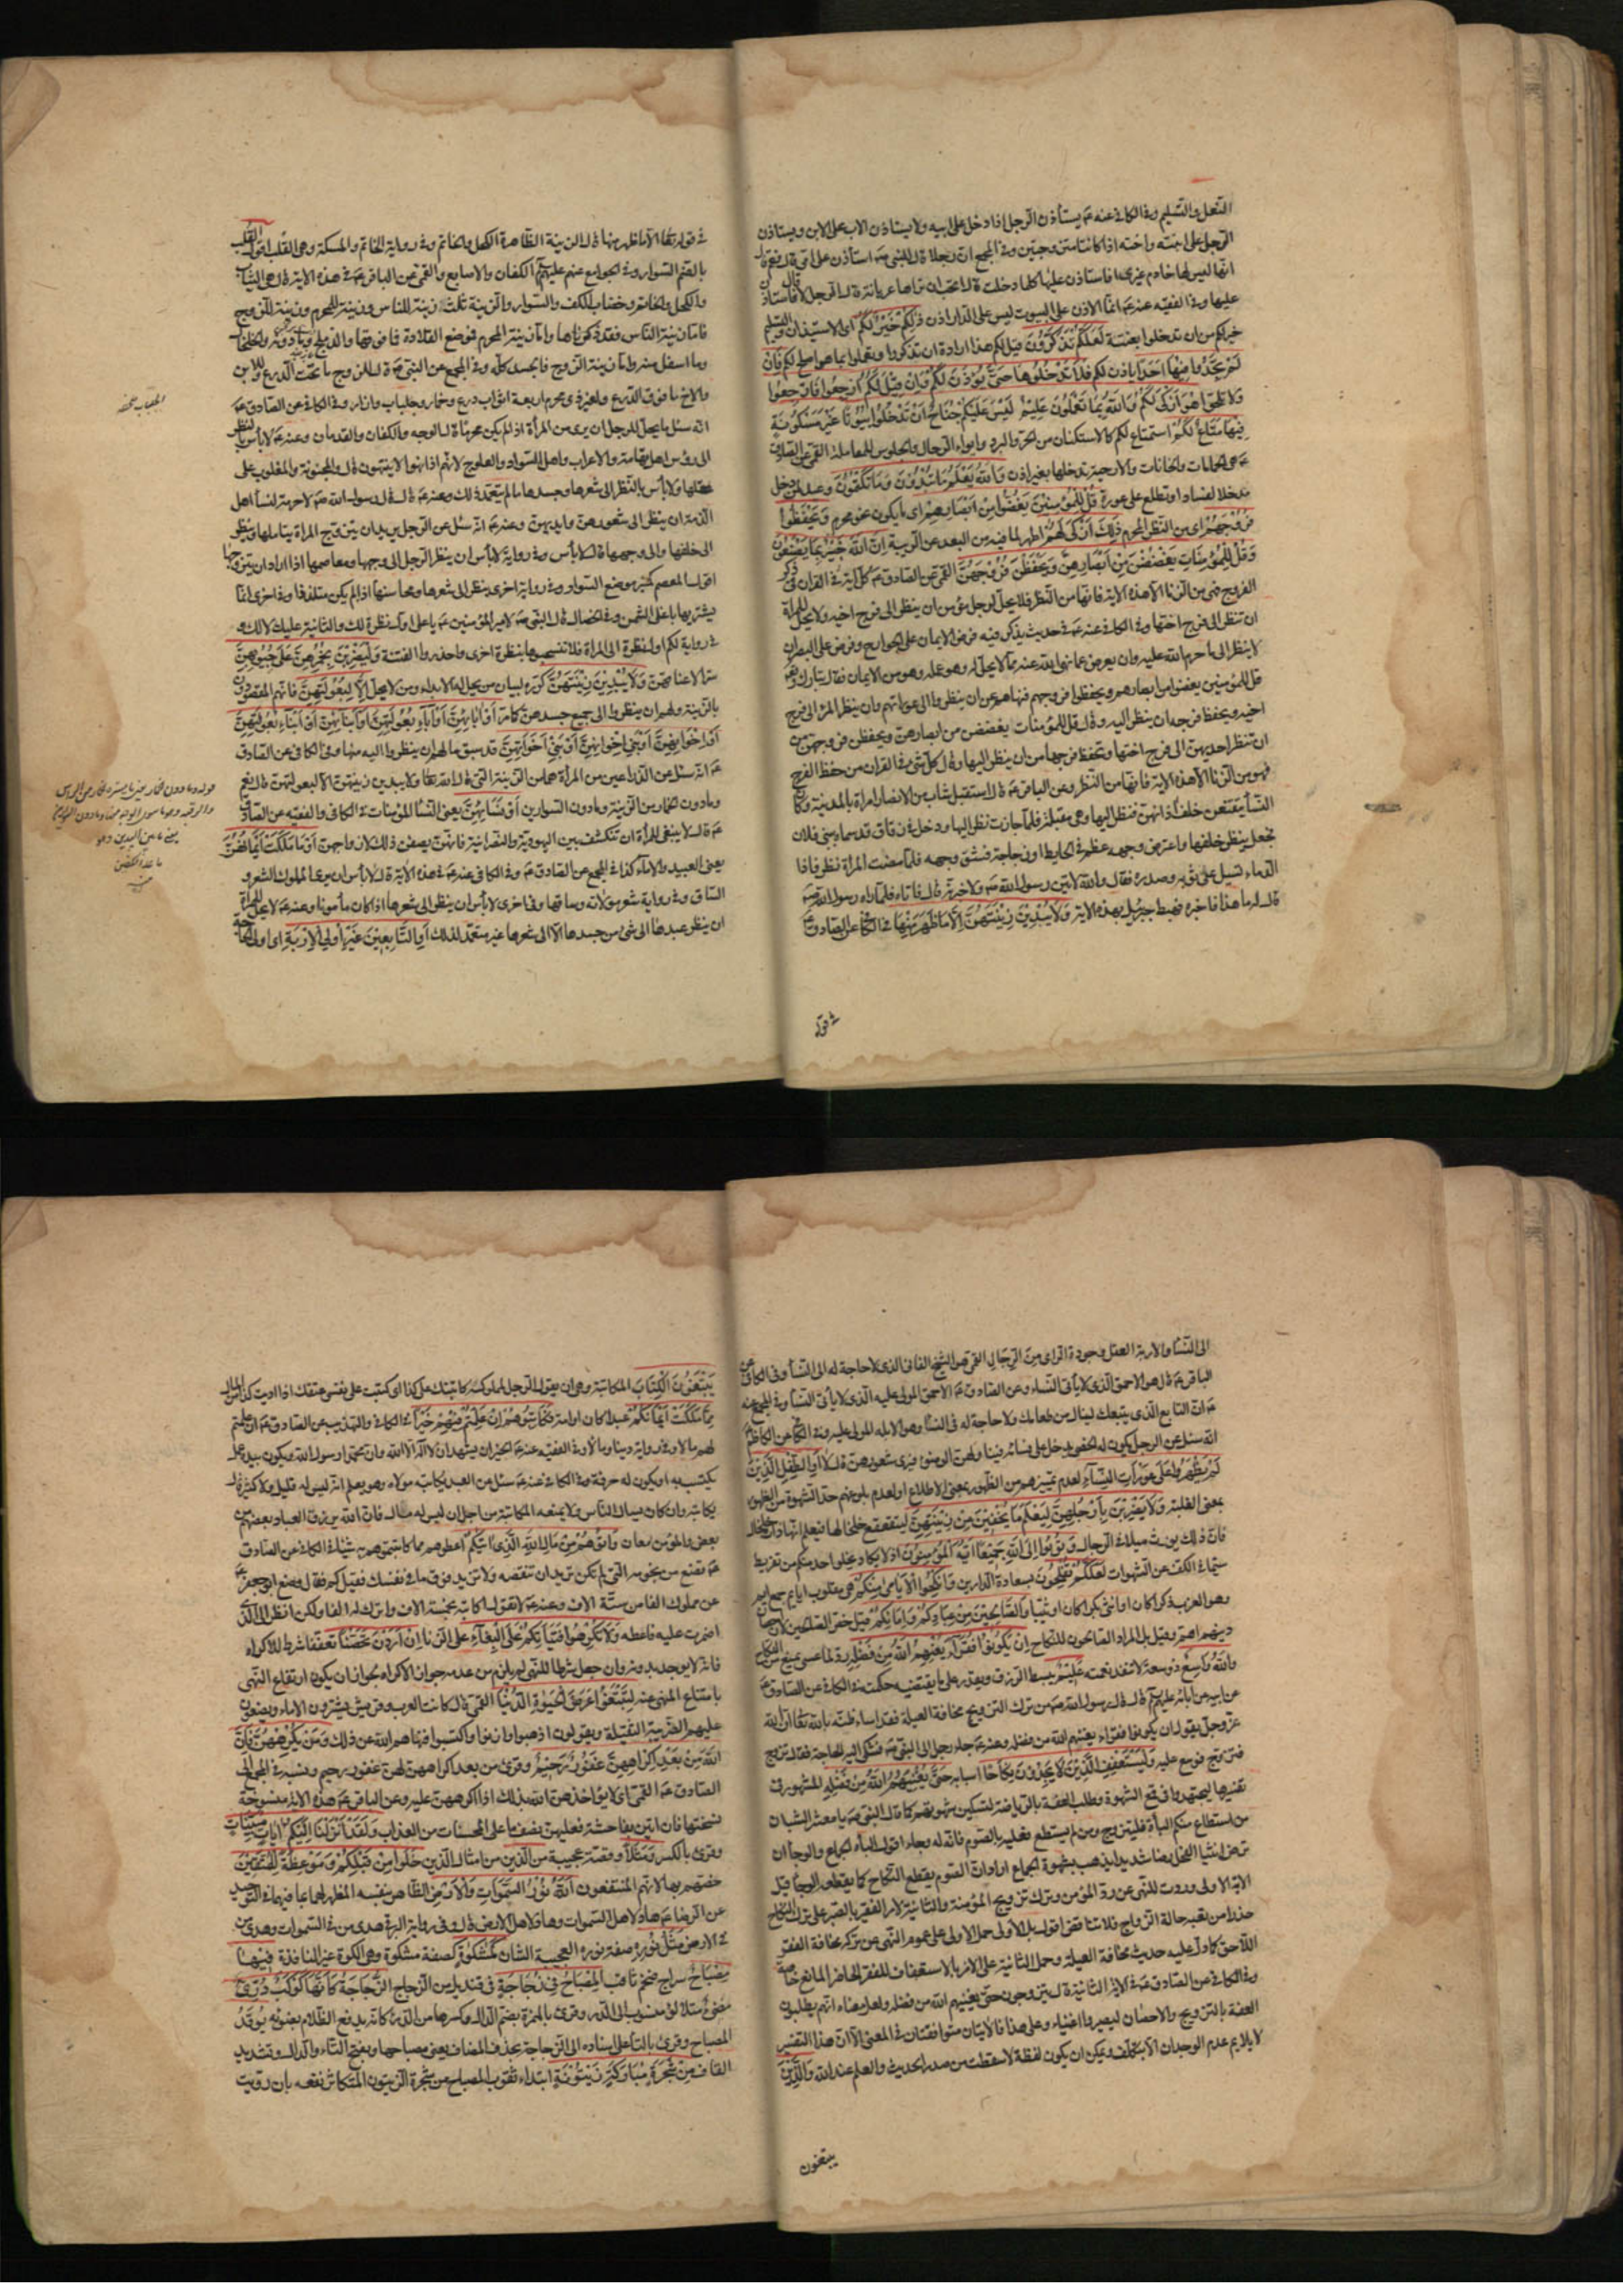 النعل والتسليم وفي الكافي عنه ع يستأذن الرجل اذا دخل على ابيه ولا يستاذن الاب على الابن ويستاذن
الرجل على ابنته واخته اذا كانتا متزوجتين وفي المجمع ان رجلا قال للنبي ص استأذن على امي قال نعم قال
انها ليس لها خادم غيري افاستاذن عليها كلما دخلت قال اتحب ان تراها عريانة قال الرجل لا قال فاستاذن
عليها وفي الفقيه عنه ع انما الاذن على البيوت ليس على الدار اذن ذلكم خير لكم اي الاستيذان والتسليم
خير لكم من ان تدخلوا بغتة لعلكم تذكرون قيل لكم هذا ارادة ان تذكروا وتعملوا بما هو اصلح لكم فان
لم تجدوا فيها احدا ياذن لكم فلا تدخلوها حتى يؤذن لكم وان قيل لكم ارجعوا فارجعوا
ولا تلحوا هو ازكى لكم والله بما تعملون عليم ليس عليكم جناح ان تدخلوا بيوتا غير مسكونة
فيها متاع لكم استمتاع لكم كالاستكنان من الحر والبرد وايواء الرحال والجلوس للمعاملة القمي عن الصادق
ع هي الحمامات والخانات والارحية تدخلها بغير اذن والله يعلم ما تبدون وما تكتمون وعيد لمن دخل
مدخلا لفساد او تطلع على عورة قل للمؤمنين يغضوا من ابصارهم اي ما يكون نحو محرم ويحفظوا
فروجهم اي من النظر المحرم ذلك ازكى لهم اطهر لما فيه من البعد عن الريبة ان الله خبير بما يصنعون
وقل للمؤمنات يغضضن من ابصارهن ويحفظن فروجهن القمي عن الصادق ع كل اية في القران في ذكر
الفروج فهي من الزنا الا هذه الاية فانها من النظر فلا يحل لرجل مؤمن ان ينظر الى فرج اخيه ولا يحل للمرأة
ان تنظر الى فرج اختها وفي الكافي عنه ع في حديث يذكر فيه فرض الايمان على الجوارح وفرض على البصر ان
لا ينظر الى ما حرم الله عليه وان يعرض عما نهى الله عنه مما لا يحل له وهو عمله وهو من الايمان فقال تبارك وتع
قل للمؤمنين يغضوا من ابصارهم ويحفظوا فروجهم فنهاهم عن ان ينظروا الى عوراتهم وان ينظر المرء الى فرج
اخيه ويحفظ فرجه ان ينظر اليه وقال قل للمؤمنات يغضضن من ابصارهن ويحفظن فروجهن من
ان تنظر احديهن الى فرج اختها وتحفظ فرجها من ان ينظر اليها وقال كل شئ في القران من حفظ الفرج
فهو من الزنا الا هذه الاية فانها من النظر وعن الباقر ع قال استقبل شاب من الانصار امراة بالمدينة وكان
النسآ يتقنعن خلف اذانهن فنظر اليها وهي مقبلة فلما جازت نظر اليها ودخل في زقاق قد سماه ببني فلان
فجعل ينظر خلفها واعترض وجهه عظم في الحايط او زجاجة فشق وجهه فلما مضت المراة نظر فاذا
الدماء تسيل على ثوبه وصدره فقال والله لاتين رسول الله ص ولاخبرنه قال فاتاه فلما رآه رسول الله ص
قال له ما هذا فاخبره فهبط جبرئيل بهذه الاية ولا يبدين زينتهن الا ما ظهر منها في الكافي عن الصادق ع
في قوله
في قوله تعا الا ما ظهر منها قال الزينة الظاهرة الكحل والخاتم وفي رواية الخاتم والمسكة وهي القلب اقول القلب
بالضم السوار وفي الجوامع عنهم عليهم السلام الكفان والاصابع والقمي عن الباقر ع في هذه الاية قال هي الثياب
والكحل والخاتم وخضاب الكف والسوار والزينة ثلث زينة للناس وزينة للمحرم وزينة للزوج
فاما زينة الناس فقد ذكرناها واما زينة المحرم فموضع القلادة فما فوقها والدملج وما دونه والخلخال
وما اسفل منه واما زينة الزوج فالجسد كله وفي المجمع عن النبي ص قال للزوج ما تحت الدرع وللابن
والاخ ما فوق الدرع ولغير ذي محرم اربعة اثواب درع وخمار وجلباب وازار وفي الكافي عن الصادق ع
انه سئل ما يحل للرجل ان يرى من المراة اذا لم يكن محرما قال الوجه والكفان والقدمان وعنه ع لا بأس بالنظر
الى رؤس اهل تهامة والاعراب واهل السواد والعلوج لانهم اذا نهوا لا ينتهون قال والمجنونة والمغلوب على
عقلها ولا بأس بالنظر الى شعرها وجسدها ما لم يتعمد ذلك وعنه ع قال قال رسول الله ص لا حرمة لنسآ اهل
الذمة ان ينظر الى شعورهن وايديهن وعنه ع انه سئل عن الرجل يريدان يتزوج المراة يتاملها وينظر
الى خلفها والى وجهها قال لا بأس وفي رواية لا بأس ان ينظر الرجل الى وجهها ومعاصمها اذا اراد ان يتزوجها
اقول المعصم كمنبر موضع السوار وفي رواية اخرى ينظر الى شعرها ومحاسنها اذا لم يكن متلذذا وفي اخرى انما
يشتريها باغلى الثمن وفي الخصال قال النبي ص لامير المؤمنين ع يا علي اول نظرة لك والثانية عليك لا لك و
في رواية لكم اول نظرة الى المراة فلا تتبعوها بنظرة اخرى واحذروا الفتنة وليضربن بخمرهن على جيوبهن
سترا لاعناقهن ولا يبدين زينتهن كرره لبيان من يحل له الابداء ومن لا يحل الا لبعولتهن فانهم المقصودون
بالزينة ولهم ان ينظروا الى جميع جسدهن كامر او ابائهن او آباء بعولتهن او ابنائهن او ابناء بعولتهن
او اخوانهن او بني اخوانهن او بني اخواتهن قد سبق ما لهم ان ينظروا اليه منها وفي الكافي عن الصادق
ع انه سئل عن الذراعين من المرأة هما من الزينة التي قال الله تعا ولا يبدين زينتهن الا لبعولتهن قال نعم
وما دون الخمار من الزينة وما دون السوارين او نسائهن يعني النسآ المؤمنات في الكافي والفقيه عن الصادق
ع قال لا ينبغي للمرأة ان تنكشف بين اليهودية والنصرانية فانهن يصفن ذلك لازواجهن او ما ملكت ايمانهن
يعني العبيد والاماء كذا في المجمع عن الصادق ع وفي الكافي عنه ع في هذه الاية قال لا بأس ان يرى المملوك الشعر و
الساق وفي رواية شعر مولاته وساقها وفي اخرى لا بأس ان ينظر الى شعرها اذا كان مأمونا وعنه ع لا يحل للمرأة
ان ينظر عبدها الى شئ من جسدها الا الى شعرها غير متعمد لذلك او التابعين غير اولي الاربة اي اولي الحاجة
قوله وما دون الخمار يعني ما يستره الخمار من الراس
والرقبة وهو ما سوى الوجه منها وما دون السوارين
يعني ما من اليدين وهو
ما عدا الكفين
منه
الى النسآ والاربة العقل وجودة الراي من الرجال القمي هو الشيخ الفاني الذي لا حاجة له الى النسآ وفي الكافي عن
الباقر ع قال هو الاحمق الذي لا يأتي النساء وعن الصادق ع الاحمق المولى عليه الذي لا يأتي النسآ وفي المجمع عنه
ع ان التابع الذي يتبعك لينال من طعامك ولا حاجة له في النسآ وهو الابله المولى عليه وفي الكافي عن الكاظم
انه سئل عن الرجل يكون له الخصي يدخل على نسائه فيناولهن الوضوء فيرى شعورهن قال لا او الطفل الذين
لم يظهروا على عورات النسآء لعدم تمييزهم من الظهور بمعنى الاطلاع او لعدم بلوغهم حد الشهوة من الظهور
بمعنى الغلبة ولا يضربن بارجلهن ليعلم ما يخفين من زينتهن ليتقعقع خلخالها فيعلم انها ذات خلخال
فان ذلك يورث ميلا في الرجال وتوبوا الى الله جميعا ايه المؤمنون اذ لا يكاد يخلو احد منكم من تفريط
سيما في الكف عن الشهوات لعلكم تفلحون بسعادة الدارين وانكحوا الايامى منكم هي مقلوب ايايم جمع ايم
وهو العزب ذكرا كان او انثى بكرا كان او ثيبا والصالحين من عبادكم وامائكم قيل خص الصالحين لان احصان
دينهم اهم وقيل بل المراد الصالحون للنكاح ان يكونوا فقرآء يغنهم الله من فضله رد لما عسى يمنع من النكاح
والله واسع ذو سعة لا تنفد نعمته عليم يبسط الرزق ويقدر على ما يقتضيه حكمته في الكافي عن الصادق ع
عن ابيه عن ابائه عليهم السلام قال قال رسول الله ص من ترك التزويج مخافة العيلة فقد اساء ظنه بالله تعا ان الله
عز وجل يقول ان يكونوا فقراء يغنهم الله من فضله وعنه ع جاء رجل الى النبي ص فشكى اليه الحاجة فقال تزوج
فتزوج فوسع عليه وليستعفف الذين لا يجدون نكاحا اسبابه حتى يغنيهم الله من فضله المشهور في
تفسيرها ليجتهدوا في قمع الشهوة وطلب العفة بالرياضة لتسكين شهوتهم كما قال النبي ص يا معشر الشبان
من استطاع منكم الباة فليتزوج ومن لم يستطع فعليه بالصوم فانه له وجاء اقول الباء الجماع والوجأ ان
ترض انثيا الفحل رضا شديدا يذهب بشهوة الجماع اراد ان الصوم يقطع النكاح كما يقطعه الوجأ قيل
الاية الاولى وردت للنهي عن رد المؤمن وترك تزويج المؤمنة والثانية لامر الفقير بالصبر على ترك النكاح
حذرا من تعبه حالة الزواج فلا تناقض اقول بل الاولى حمل الاولى على عموم النهي عن تركه مخافة الفقر
اللاحق كما دل عليه حديث مخافة العيلة وحمل الثانية على الامر بالاستعفاف للفقر الحاضر المانع خاصة
وفي الكافي عن الصادق ع في الاية الثانية قال يتزوجون حتى يغنيهم الله من فضله ولعل معناه انهم يطلبون
العفة بالتزويج والاحصان ليصيروا اغنياء وعلى هذا فالايتان متوافقتان في المعنى الا ان هذا التفسير
لا يلايم عدم الوجدان الا بتكلف ويمكن ان يكون لفظة لا سقطت من صدر الحديث والعلم عند الله والذين
يبتغون
يبتغون الكتاب المكاتبة وهي ان يقول الرجل لمملوكه كاتبتك على كذا اي كتبت على نفسي عتقك اذا اديت كذا من المال
مما ملكت ايمانكم عبدا كان او امة فكاتبوهم ان علمتم فيهم خيرا في الكافي والتهذيب عن الصادق ع ان علمتم
لهم مالا وفي رواية دينا ومالا وفي الفقيه عنه ع الخير ان يشهد ان لا اله الا الله وان محمدا رسول الله ويكون بيده عمل
يكتسب به او يكون له حرفة وفي الكافي عنه ع سئل عن العبد يكاتبه مولاه وهو يعلم انه ليس له قليل ولا كثير قال
يكاتبه وان كان يسال الناس ولا يمنعه المكاتبة من اجل ان ليس له مال فان الله يرزق العباد بعضهم من
بعض والمؤمن معان واتوهم من مال الله الذي اتيكم اعطوهم مما كاتبتموهم به شيئا في الكافي عن الصادق
ع تضع من نجومه التي لم تكن تريد ان تنقصه ولا تزيد فوق ما في نفسك فقيل كم فقال وضع ابو جعفر ع
عن مملوك الفا من ستة الاف وعنه ع لا تقول اكاتبه بخمسة الاف واترك له الفا ولكن انظر الى الذي
اضمرت عليه فاعطه ولا تكرهوا فتياتكم على البغآء على الزنا ان اردن تحصنا تعففا شرط للاكراه
فانه لا يوجد بدونه وان جعل شرطا للنهي لم يلزم من عدمه جواز الاكراه لجواز ان يكون ارتفاع النهي
بامتناع المنهي عنه لتبتغوا عرض الحيوة الدنيا القمي قال كانت العرب وقريش يشترون الاماء ويضعون
عليهم الضريبة الثقيلة ويقولون اذهبوا وازنوا واكتسبوا فنهاهم الله عن ذلك ومن يكرههن فان
الله من بعد اكراههن غفور رحيم وقرئ من بعد اكراههن لهن غفور رحيم ونسبه في المجمع الى
الصادق ع القمي اي لا يؤاخذهن الله بذلك اذا اكرههن عليه وعن الباقر ع هذه الاية منسوخة
نسختها فان اتين بفاحشة فعليهن نصف ما على المحصنات من العذاب ولقد انزلنا اليكم ايات مبينات
وقرئ بالكسر ومثلا وقصة عجيبة من الذين من امثال الذين خلوا من قبلكم وموعظة للمتقين
خصهم بها لانهم المنتفعون الله نور السموات والارض الظاهر بنفسه المظهر لهما بما فيهما في التوحيد
عن الرضا ع هاد لاهل السموات وهاد لاهل الارض قال وفي رواية البرقي هدى من في السموات وهدى من
في الارض مثل نوره صفة نوره العجيبة الشان كمشكوة كصفة مشكوة وهي الكوة غير النافذة فيها
مصباح سراج ضخم ثاقب المصباح في زجاجة في قنديل من الزجاج الزجاجة كانها كوكب دري
مضئ متلالئ منسوب الى الدر وقرئ بالهمزة بضم الدال وكسرها من الدرء كانه يدفع الظلام بضوئه يوقد
المصباح وقرئ بالتاء على اسناده الى الزجاجة بحذف المضاف يعني مصباحها وبفتح التاء والدال وتشديد
القاف من شجرة مباركة زيتونة ابتداء ثقوب المصباح من شجرة الزيتون المتكاثر نفعه بان رويت